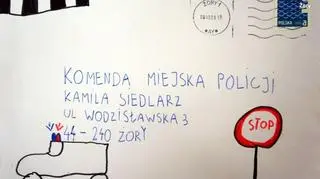 ŻORY 1
Żory
POLSKA
KOMENDA MIEJSKA POLICJI
KAMILA SIEDLARZ
UL WODZISŁAWSKA 3
44-240 ŻORY
STOP